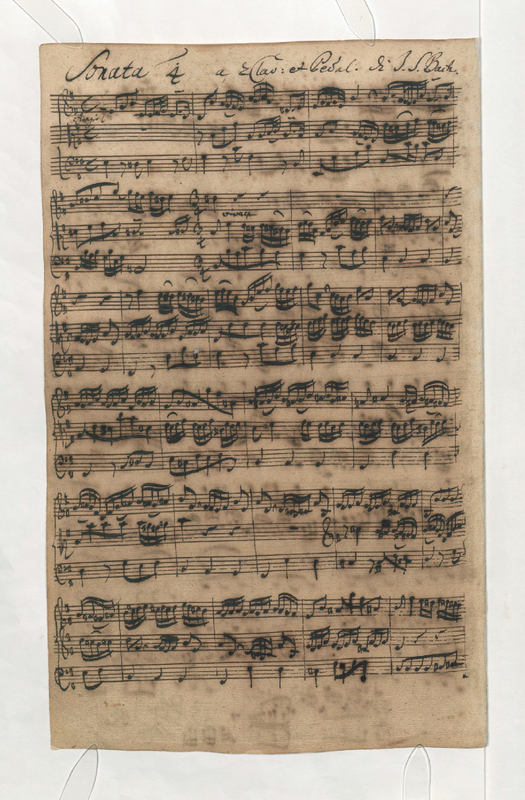 Sonata 4 a 2 Clav: et Pedal. di J. S. Bach.
Adagio
vivace